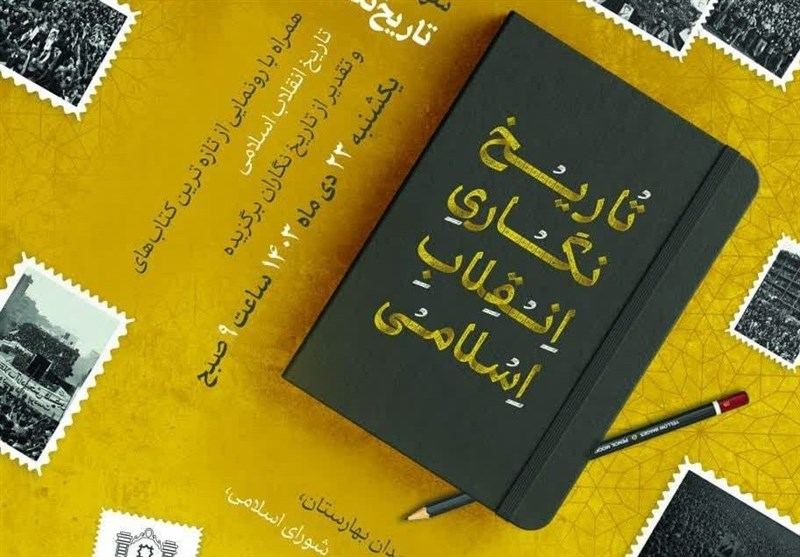 همراه با رونمایی از تازه ترین کتاب‌های
تاریخ انقلاب اسلامی
و تقدیر از تاریخ نگاران برگزیده
یکشنبه ۲۳ دی ماه ۱۴۰۳ ساعت ۹ صبح
تاریخ
نگاری
انقلاب
اسلامی
YELLOW IMAGES
بهارستان،
شورای اسلامی،